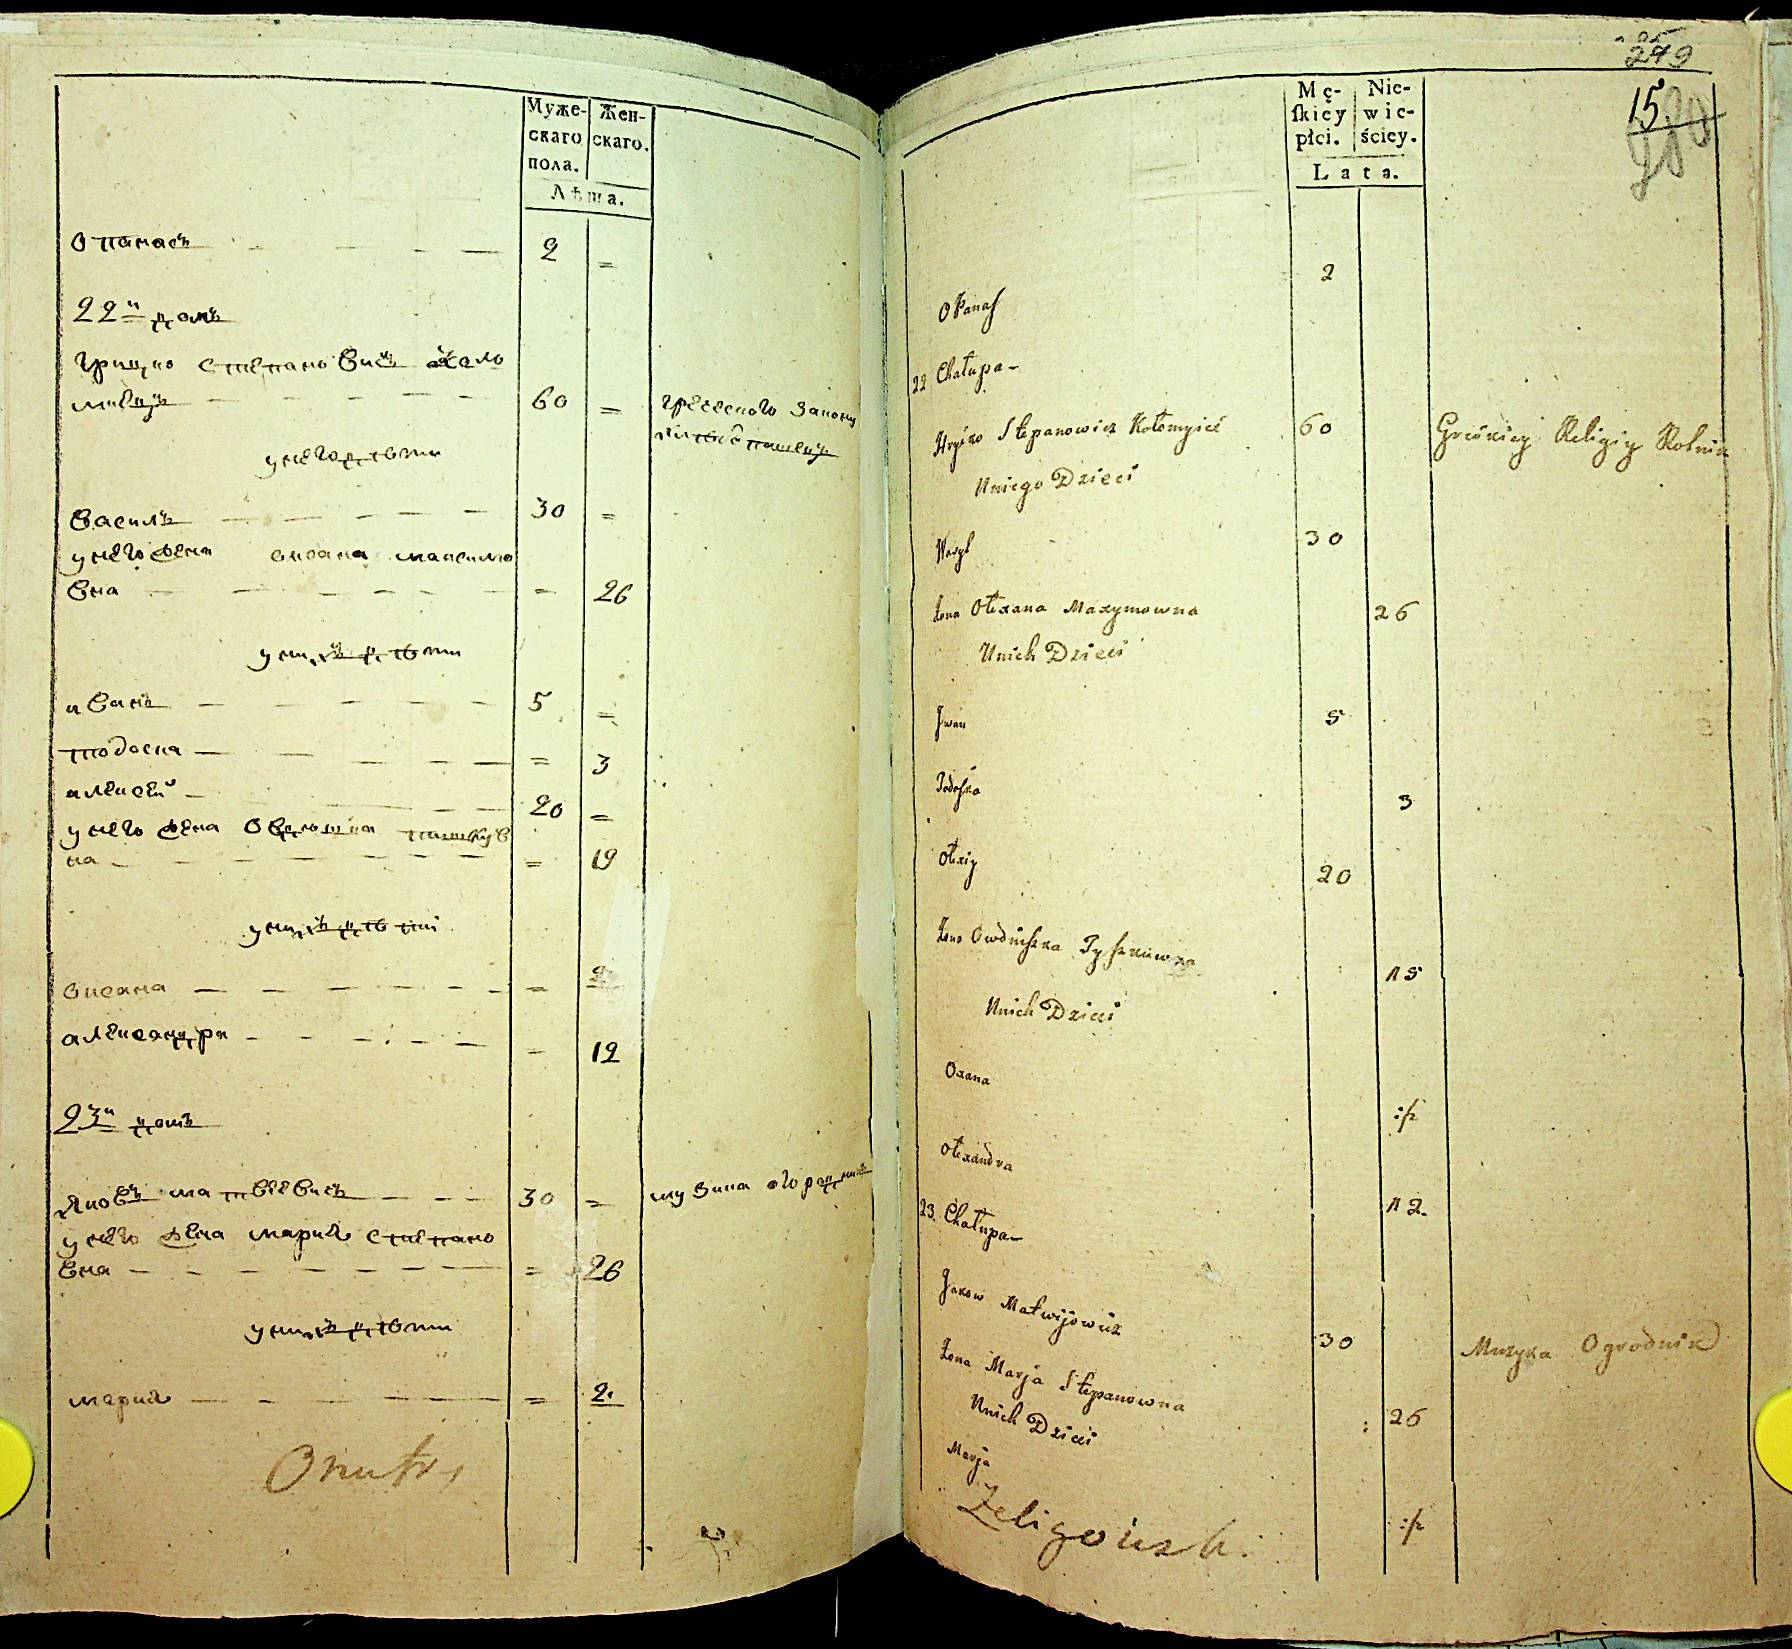 Муже-
скаго
пола.
Жен-
скаго.
Лѣта.
Опанасъ 2 =
22й домъ
Грицко Степановичъ Коло
миецъ 60 = греческого закону
у него дѣти
Василь 30 =
у него жена Оксана Максимо
вна = 26
у нихъ дѣти
Иванъ 5 =
Тодоска = 3
Алексей 20 =
у него жена Овдюшка
на = 19
у нихъ дѣти
Оксана =
Александра = 12
23й домъ
Яковъ Матвеевичъ 30 = музика огородникъ
у него жена Мария Степано
вна = 26
у нихъ дѣти
Мария = 2.
249
15
Mę-
ſkiéy
płci.
Nie-
wie-
ściey.
Lata.
2
Opanaſ
22 Chałupa
Hryćko Stepanowicz Kołomyieć 60 Greckiey Religiy Rolnik
Uniego Dzieci
Wasyl 30
żona Olexana Maxymowna 26
Unich Dzieci
Jwan 5
Todoſka 3
Olexiy 20
żona Owduſzka 15
Unich Dzieci
Oxana :/2
Olexandra 12.
23. Chałupa
Jakow Matwijowicz 30 Muzyka Ogrodnik
żona Marja Stepanowna 26
Unich Dzieci
Marja :/2